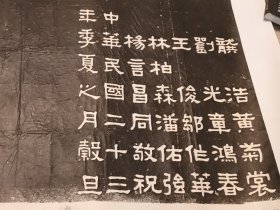 龔浩黃菊裳
劉光童鴻春
王俊鄒作華
林柏森潘佑強
楊言昌同敬祝
中華民國二十三
年季夏之月穀旦